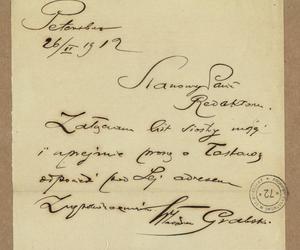 Petersburg
26/II 1912
Szanowny Panie
Redaktorze
Załączam list siostry mojej
i uprzejmie proszę o łaskawą
odpowiedź pod Jej adresem
Grabski
72